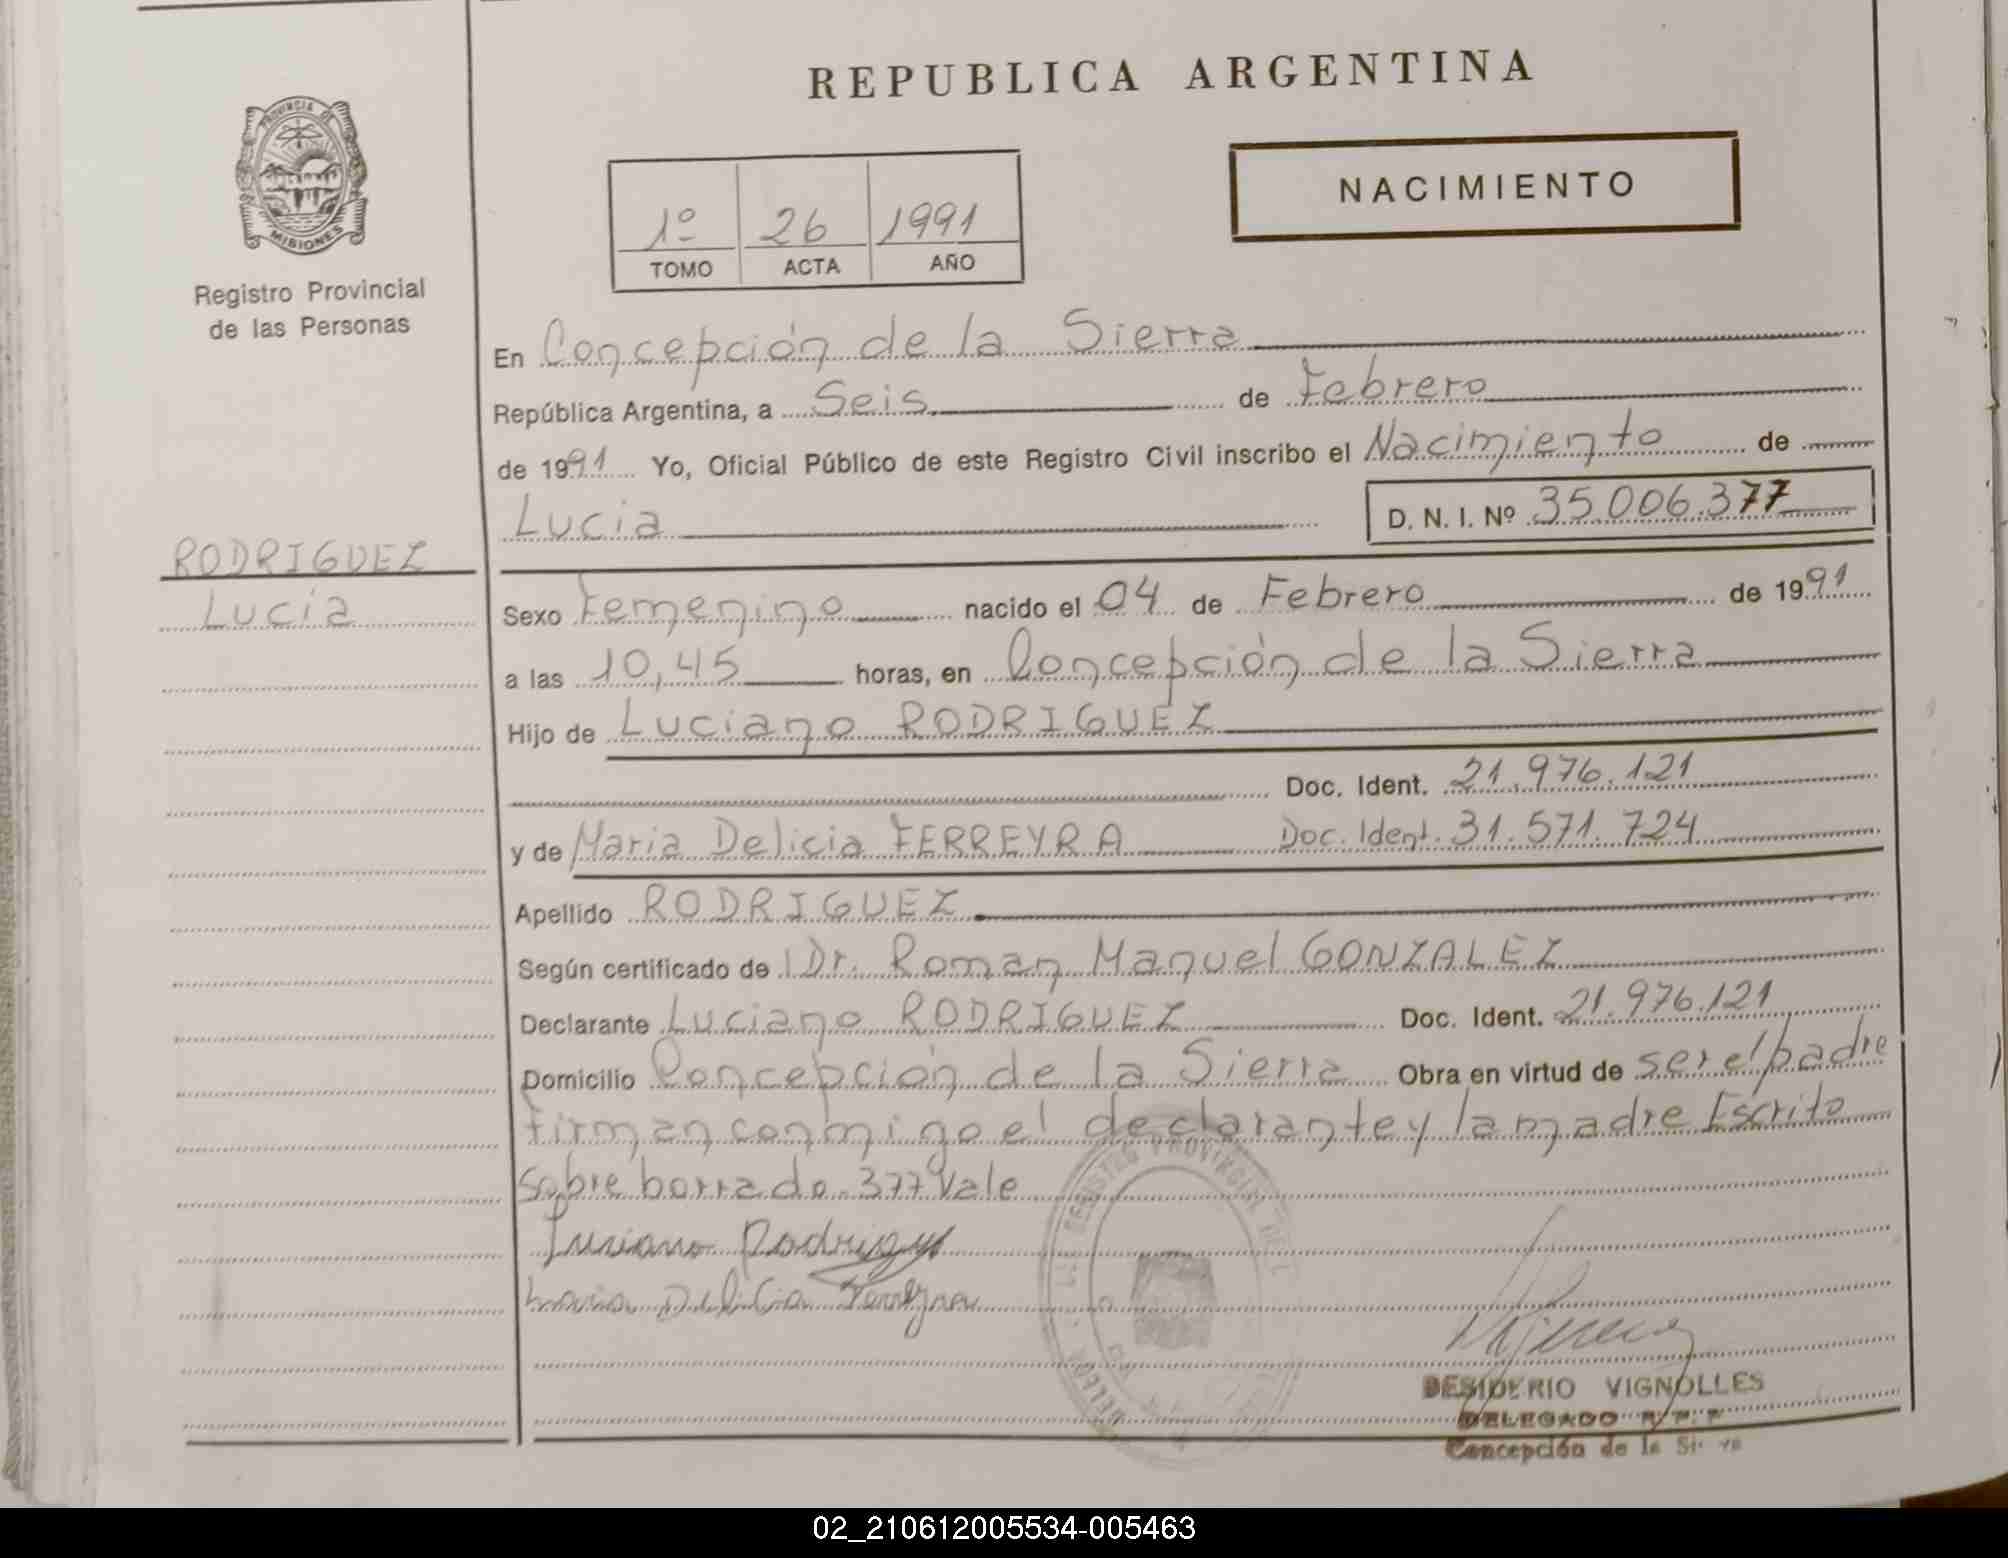 REPUBLICA ARGENTINA
PROVINCIA DE
MISIONES
Registro Provincial
de las Personas
NACIMIENTO
1º 26 1991
TOMO ACTA AÑO
En Concepción de la Sierra
República Argentina, a Seis de Febrero
de 1991 Yo, Oficial Público de este Registro Civil inscribo el Nacimiento de
Lucia D. N. I. Nº 35.006.377
RODRIGUEZ
Lucia
Sexo Femenino nacido el 04 de Febrero de 1991
a las 10,45 horas, en Concepción de la Sierra
Hijo de Luciano RODRIGUEZ
Doc. Ident. 21.976.121
y de Maria Delicia FERREYRA Doc. Ident. 31.571.724
Apellido RODRIGUEZ
Según certificado de Dr. Roman Manuel GONZALEZ
Declarante Luciano RODRIGUEZ Doc. Ident. 21.976.121
Domicilio Concepción de la Sierra Obra en virtud de ser el padre
firman conmigo el declarante y la madre Escrito
sobre borrado 377 Vale
Luciano Rodriguez
Maria Delicia Ferreyra
REGISTRO PROVINCIAL DE
DESIDERIO VIGNOLLES
DELEGADO R. P. P
Concepción de la Sierra
02_210612005534-005463